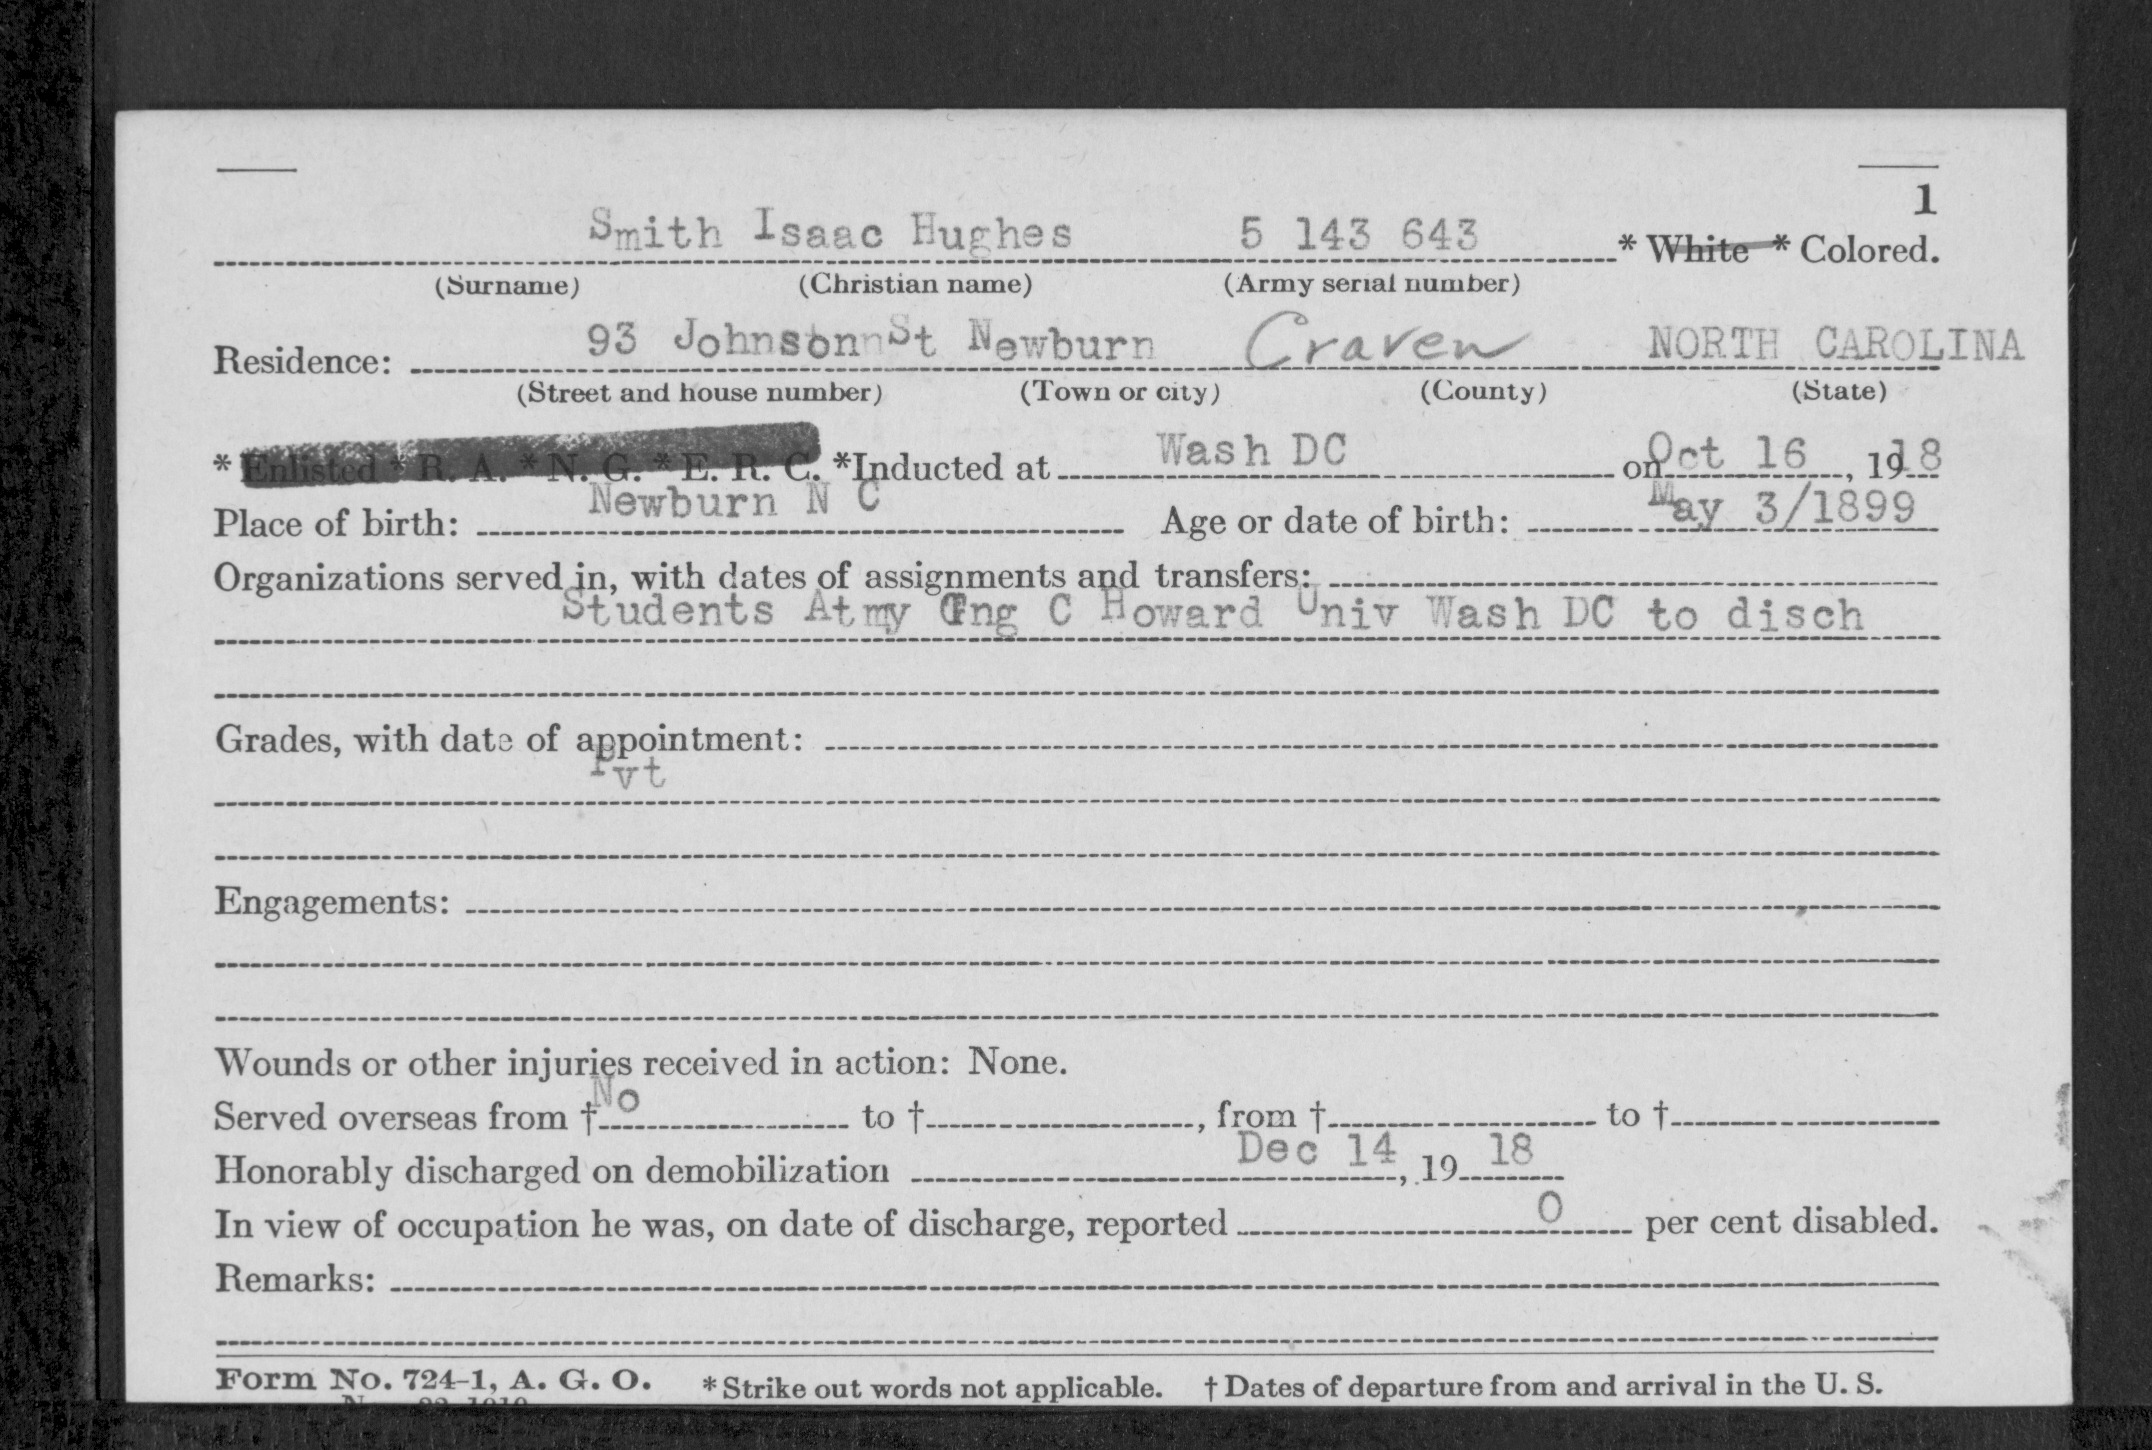 1
Smith Isaac Hughes 5 143 643 * White * Colored.
(Surname) (Christian name) (Army serial number)
Residence: 93 Johnson St Newburn Craven NORTH CAROLINA
(Street and house number) (Town or city) (County) (State)
* Enlisted * R. A. * N. G. * E. R. C. *Inducted at Wash DC on Oct 16, 1918
Place of birth: Newburn N C Age or date of birth: May 3/1899
Organizations served in, with dates of assignments and transfers:
Students Atmy Tng C Howard Univ Wash DC to disch
Grades, with date of appointment:
Pvt
Engagements:
Wounds or other injuries received in action: None.
Served overseas from † No to †, from † to †
Honorably discharged on demobilization Dec 14, 19 18
In view of occupation he was, on date of discharge, reported 0 per cent disabled.
Remarks:
Form No. 724-1, A. G. O. * Strike out words not applicable. † Dates of departure from and arrival in the U. S.